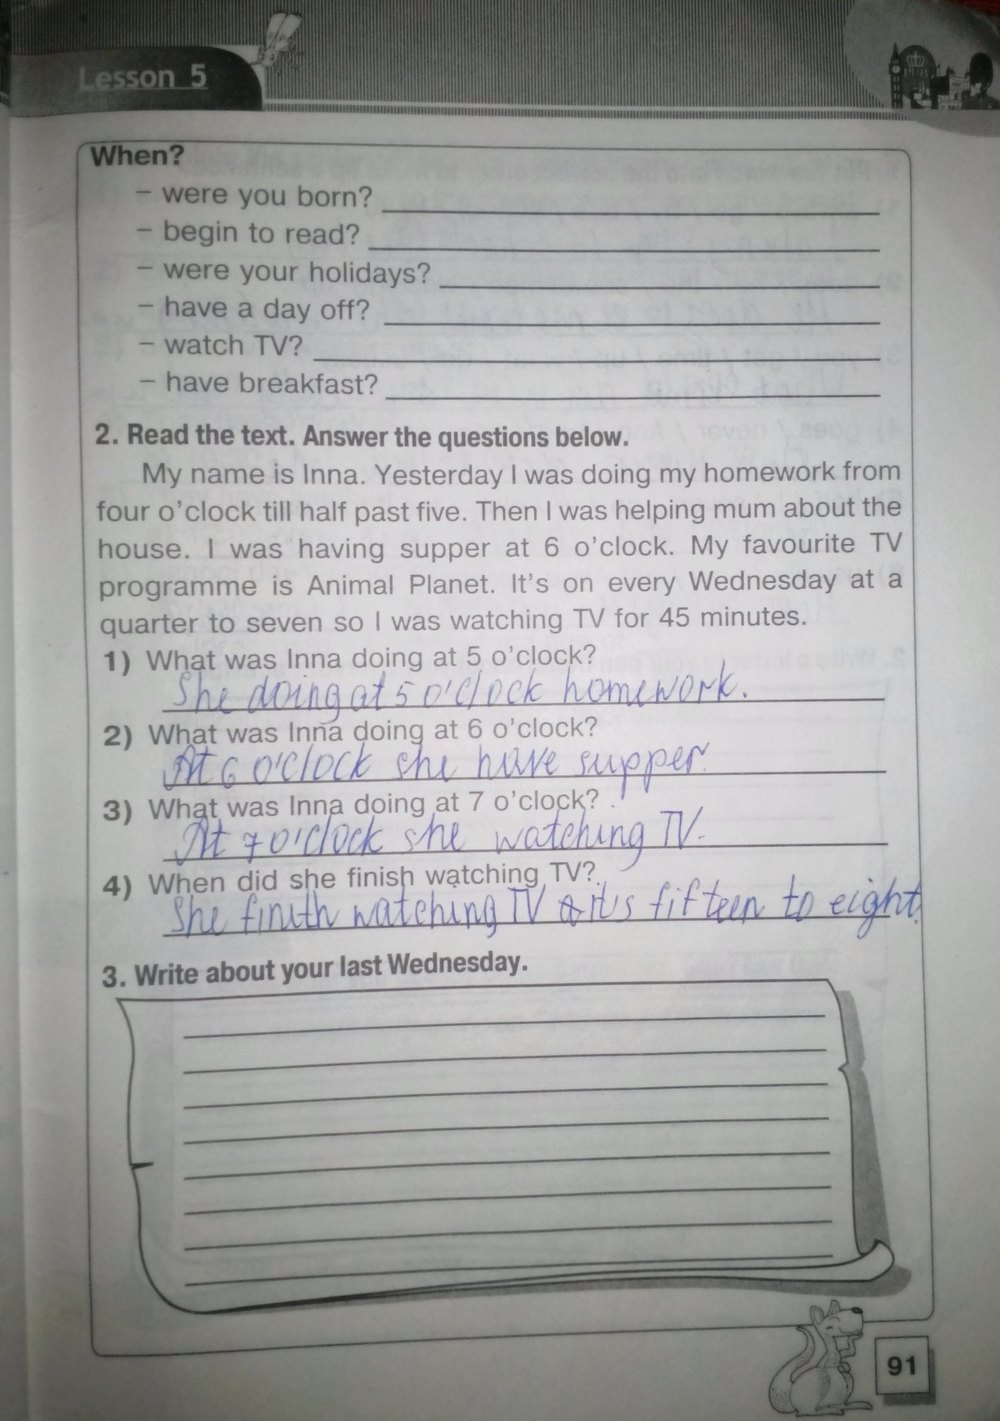 Lesson 5
When?
– were you born?
– begin to read?
– were your holidays?
– have a day off?
– watch TV?
– have breakfast?
2. Read the text. Answer the questions below.
My name is Inna. Yesterday I was doing my homework from
four o'clock till half past five. Then I was helping mum about the
house. I was having supper at 6 o'clock. My favourite TV
programme is Animal Planet. It's on every Wednesday at a
quarter to seven so I was watching TV for 45 minutes.
1) What was Inna doing at 5 o'clock?
She doing at 5 o'clock homework.
2) What was Inna doing at 6 o'clock?
At 6 o'clock she have supper.
3) What was Inna doing at 7 o'clock?
At 7 o'clock she watching TV.
4) When did she finish watching TV?
She watching TV it's fifteen to eight.
3. Write about your last Wednesday.
91